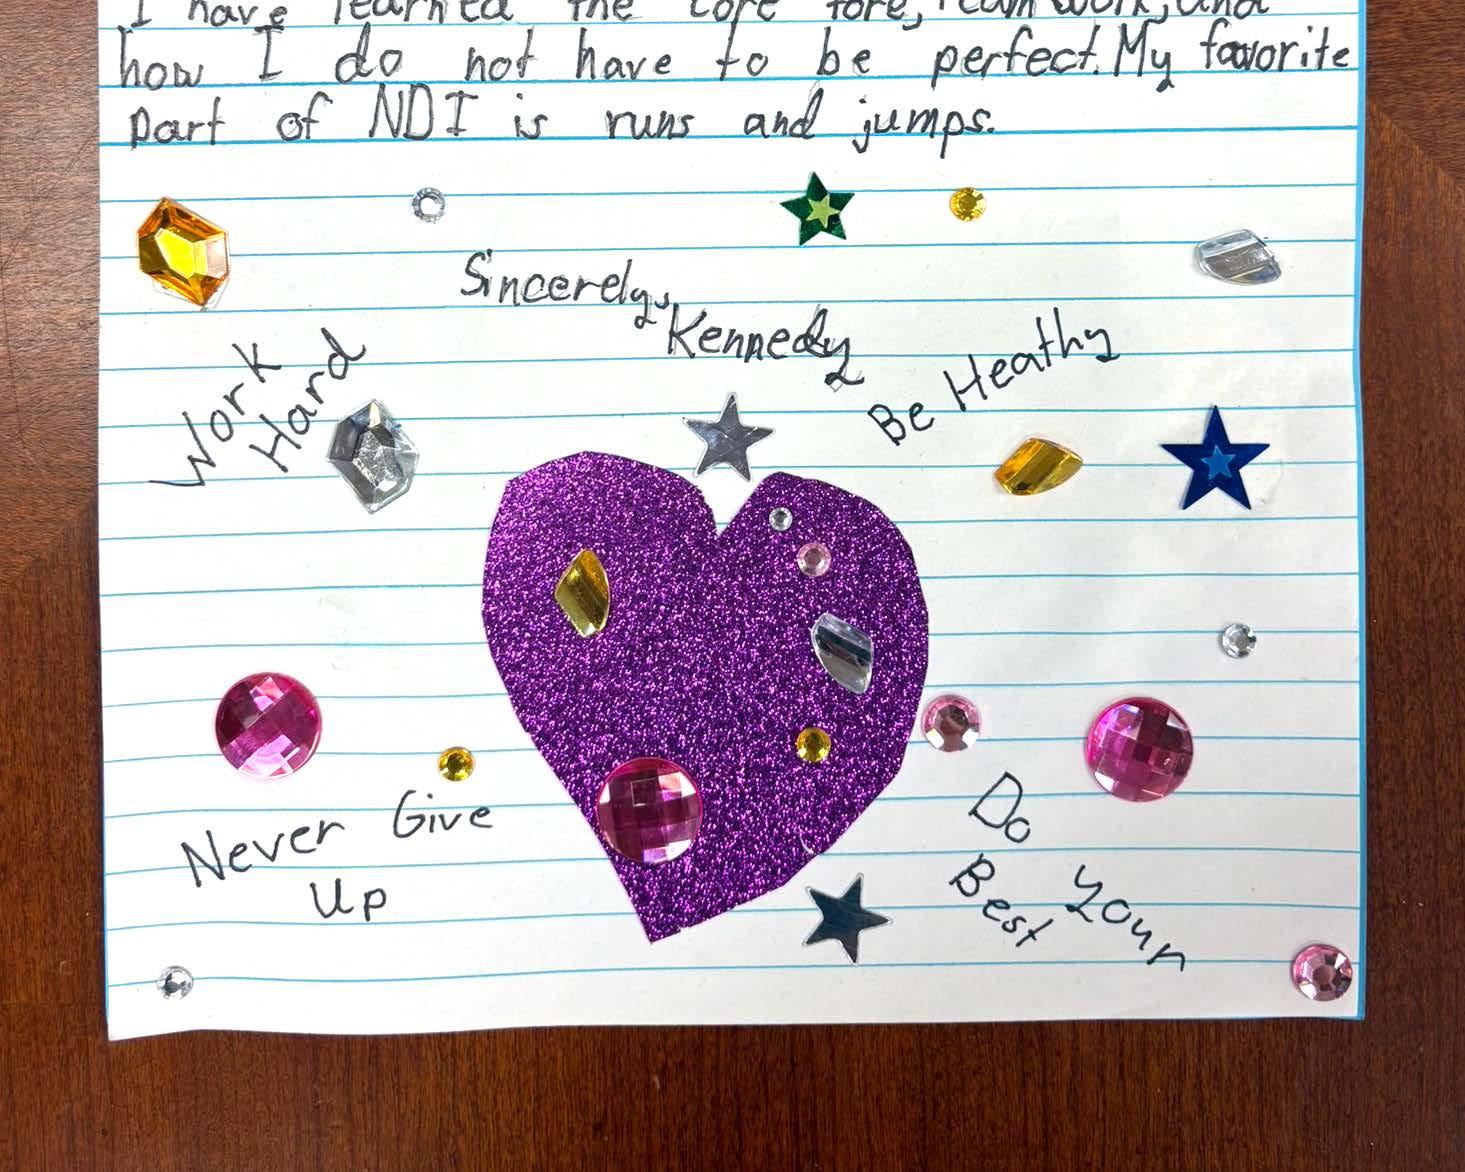 I have learned the core fore, Teamwork, and
how I do not have to be perfect. My favorite
part of NDI is runs and jumps.
Sincerely,
Kennedy
Work
Hard
Be Heathy
Never Give
Up
Do your
Best